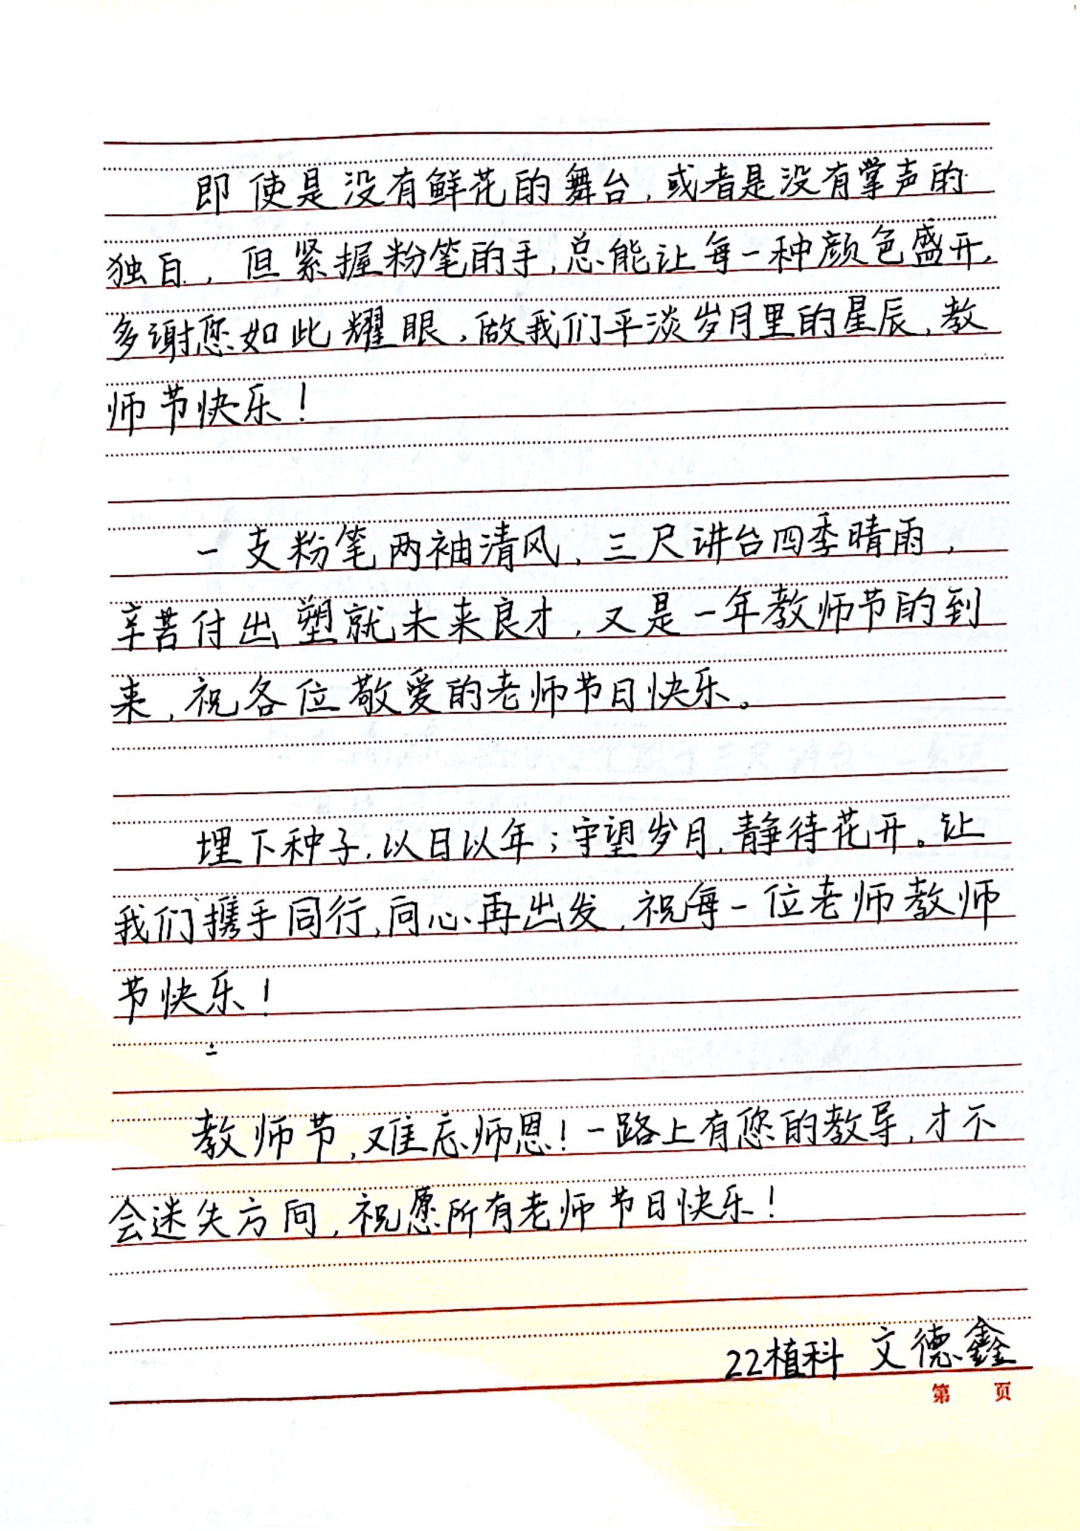 即使是没有鲜花的舞台，或者是没有掌声的
独白，但紧握粉笔的手，总能让每一种颜色盛开，
多谢您如此耀眼，做我们平淡岁月里的星辰，教
师节快乐！
一支粉笔两袖清风，三尺讲台四季晴雨，
辛苦付出塑就未来良才，又是一年教师节的到
来，祝各位敬爱的老师节日快乐。
埋下种子，以日以年；守望岁月，静待花开。让
我们携手同行，同心再出发，祝每一位老师教师
节快乐！
教师节，难忘师恩！一路上有您的教导，才不
会迷失方向，祝愿所有老师节日快乐！
22植科 文德鑫
第 页